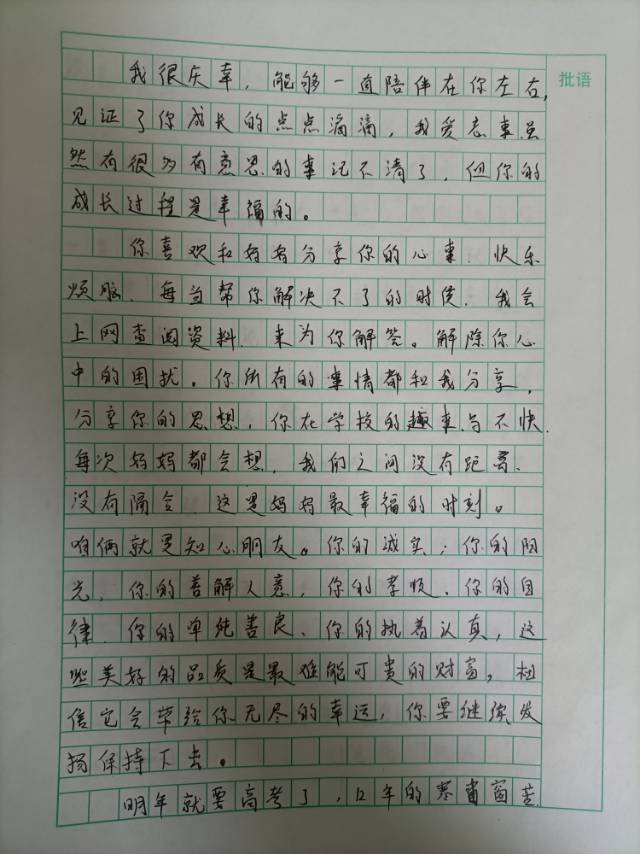 批语
我很庆幸，能够一直陪伴在你左右，
见证了你成长的点点滴滴，我爱忘事虽
然有很多有意思的事记不清了，但你的
成长过程是幸福的。
你喜欢和妈妈分享你的心事、快乐
烦脑、每当帮你解决不了的时侯，我会
上网查阅资料、来为你解答。解除你心
中的困扰。你所有的事情都和我分享，
分享你的思想，你在学校的趣事与不快、
每次妈妈都会想，我们之间没有距离、
没有隔合、这是妈妈最幸福的时刻。
咱俩就是知心朋友。你的诚实，你的阳
光，你的善解人意，你的孝顺、你的自
律、你的单纯善良、你的执着认真，这
些美好的品质是最难能可贵的财富，相
信它会带给你无尽的幸运，你要继续发
扬保持下去。
明年就要高考了，12年的寒窗苦